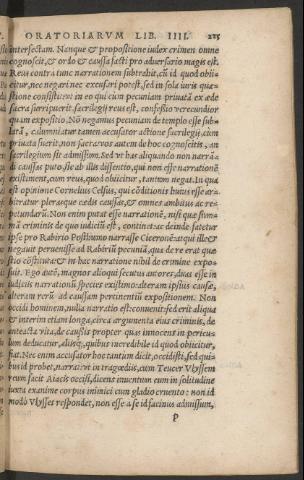 ORATORIARVM LIB. IIII. 215
intersectam. Nanque & propositione iudex crimen omne
cognoscit, & ordo & caussa facti pro aduersario magis est.
Reus contra tunc narrationem subtrahit, cũ id quod obii-
citur, nec negari nec excusari potest, sed in sola iuris quæ-
stione consistit: ut in eo qui cum pecuniam priuatã ex æde
sacra surripuerit, sacrilegij reus est, confessio verecundior
quam expositio. Nõ negamus pecuniam de templo esse sub-
latã, calumniatur tamen accusator actione sacrilegij, cum
priuata fuerit, non sacra: vos autem de hoc cognoscitis, an
sacrilegium sit admissum. Sed vt has aliquando non narrã-
di caussas puto, sic ab illis dissentio, qui non esse narrationẽ
existiment, cum reus, quod obiicitur, tantum negat. In qua
est opinione Cornelius Celsus, qui cõditionis huius esse ar-
bitratur plerasque cædis caussas, & omnes ambitus ac re-
petundarũ. Non enim putat esse narrationẽ, nisi quæ sum-
mã criminis de quo iudiciũ est, contineat: deinde fatetur
ipse pro Rabirio Posthumo narrasse Ciceronẽ: atqui ille &
negauit peruenisse ad Rabiriũ pecuniã, qua de re erat quæ-
stio cõstituta: & in hac narratione nihil de crimine expo-
suit. Ego autẽ, magnos alioqui secutus autores, duas esse in
iudiciis narrationũ species existimo: alteram ipsius caussæ,
alteram rerũ ad caussam pertinentiũ expositionem. Non
occidi hominem, nulla narratio est: conuenit: sed erit aliqua
& interim etiam longa, circa argumenta eius criminis, de
anteacta vita, de caussis propter quas innocens in pericu-
lum deducatur, aliisq́;, quibus incredibile id quod obiicitur,
fiat. Nec enim accusator hoc tantum dicit, occidisti, sed qui-
bus id probet, narrat: vt in tragœdiis, cum Teucer Vlyssem
reum facit Aiacis occisi, dicens inuentum eum in solitudine
iuxta exanime corpus inimici cum gladio cruento: non id
modò Vlysses respondet, non esse a se id facinus admissum,
P